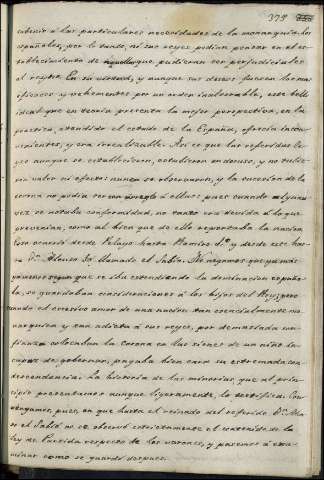 379
cubrir á las particulares necesidades de la monarquia. Los
españoles, por lo tanto, ni sus reyes podian pensar en el es-
tablecimiento de aquellas que pudieran ser perjudiciales
al reyno. En su virtud, y aunque sus deseos fuesen los mas
eficaces y vehementes por un orden inalterable, este bello
ideal que en teoria presenta la mejor perspectiva, en la
practica, atendido el estado de la España, ofrecia incon-
venientes, y era irrealizable. Asi es que las referidas le-
yes aunque se establecieron, estubieron en desuso, y no tubie-
ron valor ni efecto: nunca se observaron, y la sucecion de la
corona no podia ser con arreglo á ellas: pues cuando alguna
vez se notaba conformidad, no tanto era devida á lo que
prevenian, como al bien que de ello reportaba la nacion.
Esto ocurrió desde Pelayo hasta Ramiro 1º y desde este has-
ta Dn. Alonso llamado el Sabio. Ni negamos que ya mas
que se iba estendiendo la dominacion españo-
la, se guardaban consideraciones á los hijos del Rey; pero
cuando el excesivo amor de una nacion tan esencialmente mo-
narquica y tan adicta á sus reyes, por demasiada con-
fianza colocaban la Corona en las sienes de un niño in-
capaz de gobernar, pagaba bien cara su estremada con-
descendencia. La historia de las minorias que al prin-
cipio presentamos aunque ligeramente, lo testifica. Con-
vengamos, pues, en que hasta el reinado del referido Dn. Alon-
so el Sabio no se observó estrictamente el contenido de la
ley de Partida respecto de los varones, y pasemos á exa-
minar como se guardó despues.